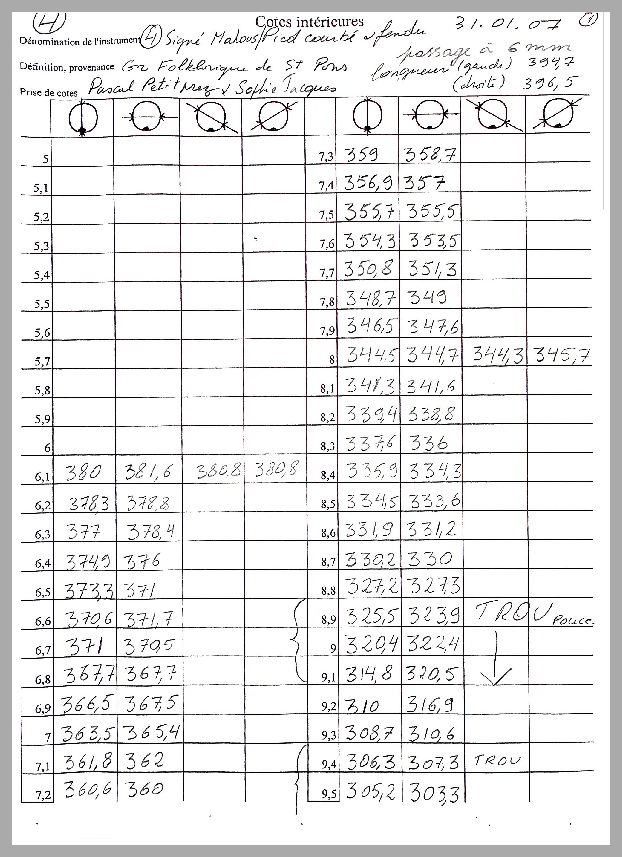 (4) Cotes intérieures 31.01.07 (1)
Dénomination de l'instrument (4) Signé Malous/Pied courbé + fendu
passage à 6 mm
Définition, provenance Folklorique de St Pons longueur (gauche) 394,7
(droite) 396,5
Prise de cotes Pascal Petitprez + Sophie Jacques
5 7,3 359 358,7
5,1 7,4 356,9 357
5,2 7,5 355,7 355,5
5,3 7,6 354,3 353,5
5,4 7,7 350,8 351,3
5,5 7,8 348,7 349
5,6 7,9 346,5 347,6
5,7 8 344,5 344,7 344,3 345,7
5,8 8,1 341,3 341,6
5,9 8,2 339,4 338,8
6 8,3 337,6 336
6,1 380 381,6 380,8 380,8 8,4 335,9 334,3
6,2 378,3 378,8 8,5 334,5 333,6
6,3 377 378,4 8,6 331,9 331,2
6,4 374,9 376 8,7 330,2 330
6,5 373,3 371 8.8 327,2 327,3
6,6 370,6 371,7 8,9 325,5 323,9 TROU Pouce
6,7 371 370,5 9 320,4 322,4
6,8 367,7 367,7 9,1 314,8 320,5
6,9 366,5 367,5 9,2 310 316,9
7 363,5 365,4 9,3 308,7 310,6
7,1 361,8 362 9,4 306,3 307,3 TROU
7,2 360,6 360 9,5 305,2 303,3